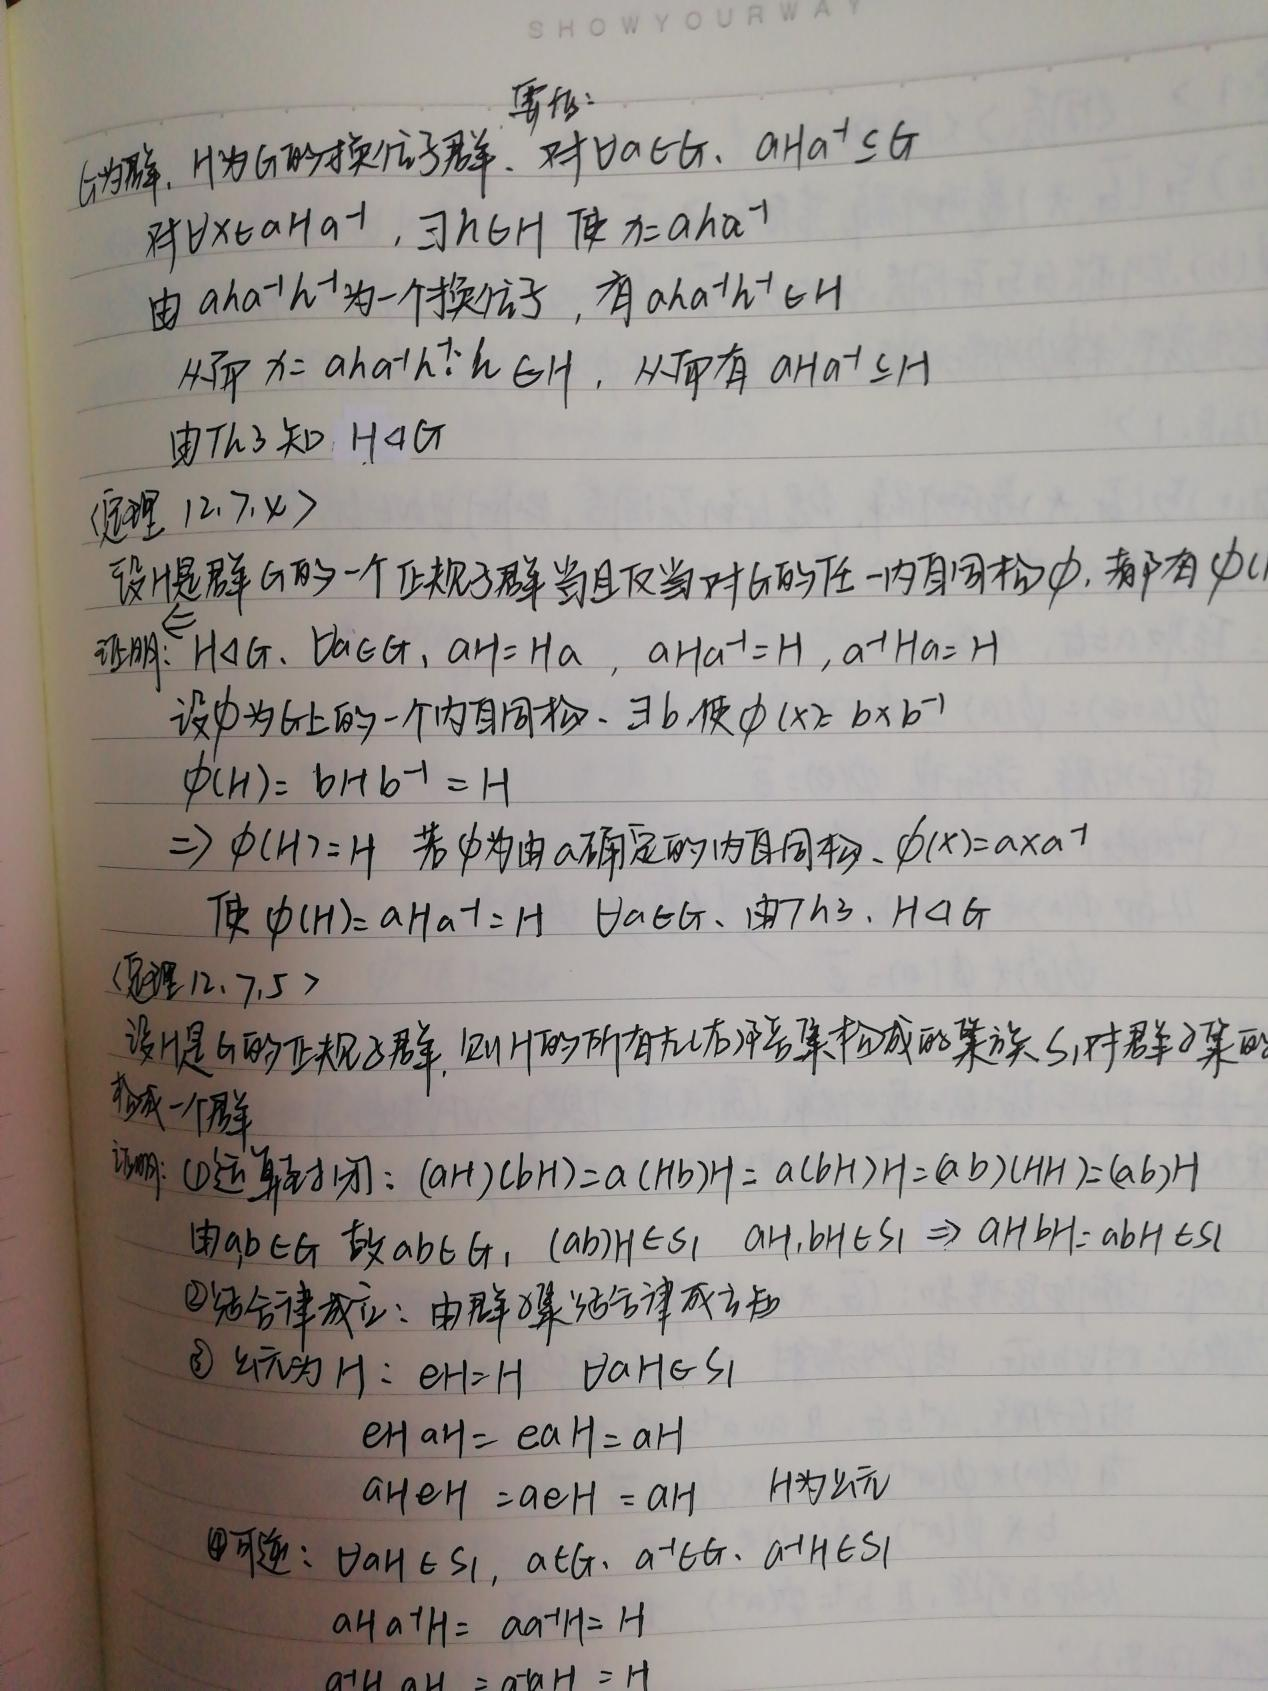 SHOWYOURWAY
要依:
G为群, H为G的换位子群、对∀a∈G、aHa⁻¹⊆G
对∀x∈aHa⁻¹, ∃h∈H 使 x=aha⁻¹
由 aha⁻¹h⁻¹为一个换位子, 有aha⁻¹h⁻¹∈H
从而 x=aha⁻¹h⁻¹·h∈H, 从而有 aHa⁻¹⊆H
由Th3知 H⊲G
<定理 12.7.4>
设H是群G的一个正规子群当且仅当对G的任一内自同构φ, 都有φ(H
⇐
证明: H⊲G、∀a∈G, aH=Ha, aHa⁻¹=H, a⁻¹Ha=H
设φ为G上的一个内自同构、∃b, 使φ(x)=bxb⁻¹
φ(H)=bHb⁻¹=H
⇒ φ(H)=H 若φ为由a确定的内自同构、φ(x)=axa⁻¹
使φ(H)=aHa⁻¹=H ∀a∈G、由Th3、H⊲G
<定理12.7.5>
设H是G的正规子群, 则H的所有左(右)陪集构成的集族S₁对群子集的
构成一个群
证明: ①运算封闭: (aH)(bH)=a(Hb)H=a(bH)H=(ab)(HH)=(ab)H
由a,b∈G 故ab∈G, (ab)H∈S₁ aH,bH∈S₁ ⇒ aHbH=abH∈S₁
②结合律成立: 由群子集结合律成立知
③ 幺元为H: eH=H ∀aH∈S₁
eHaH=eaH=aH
aHeH=aeH=aH H为幺元
④可逆: ∀aH∈S₁, a∈G、a⁻¹∈G、a⁻¹H∈S₁
aHa⁻¹H=aa⁻¹H=H
a⁻¹HaH=a⁻¹aH=H